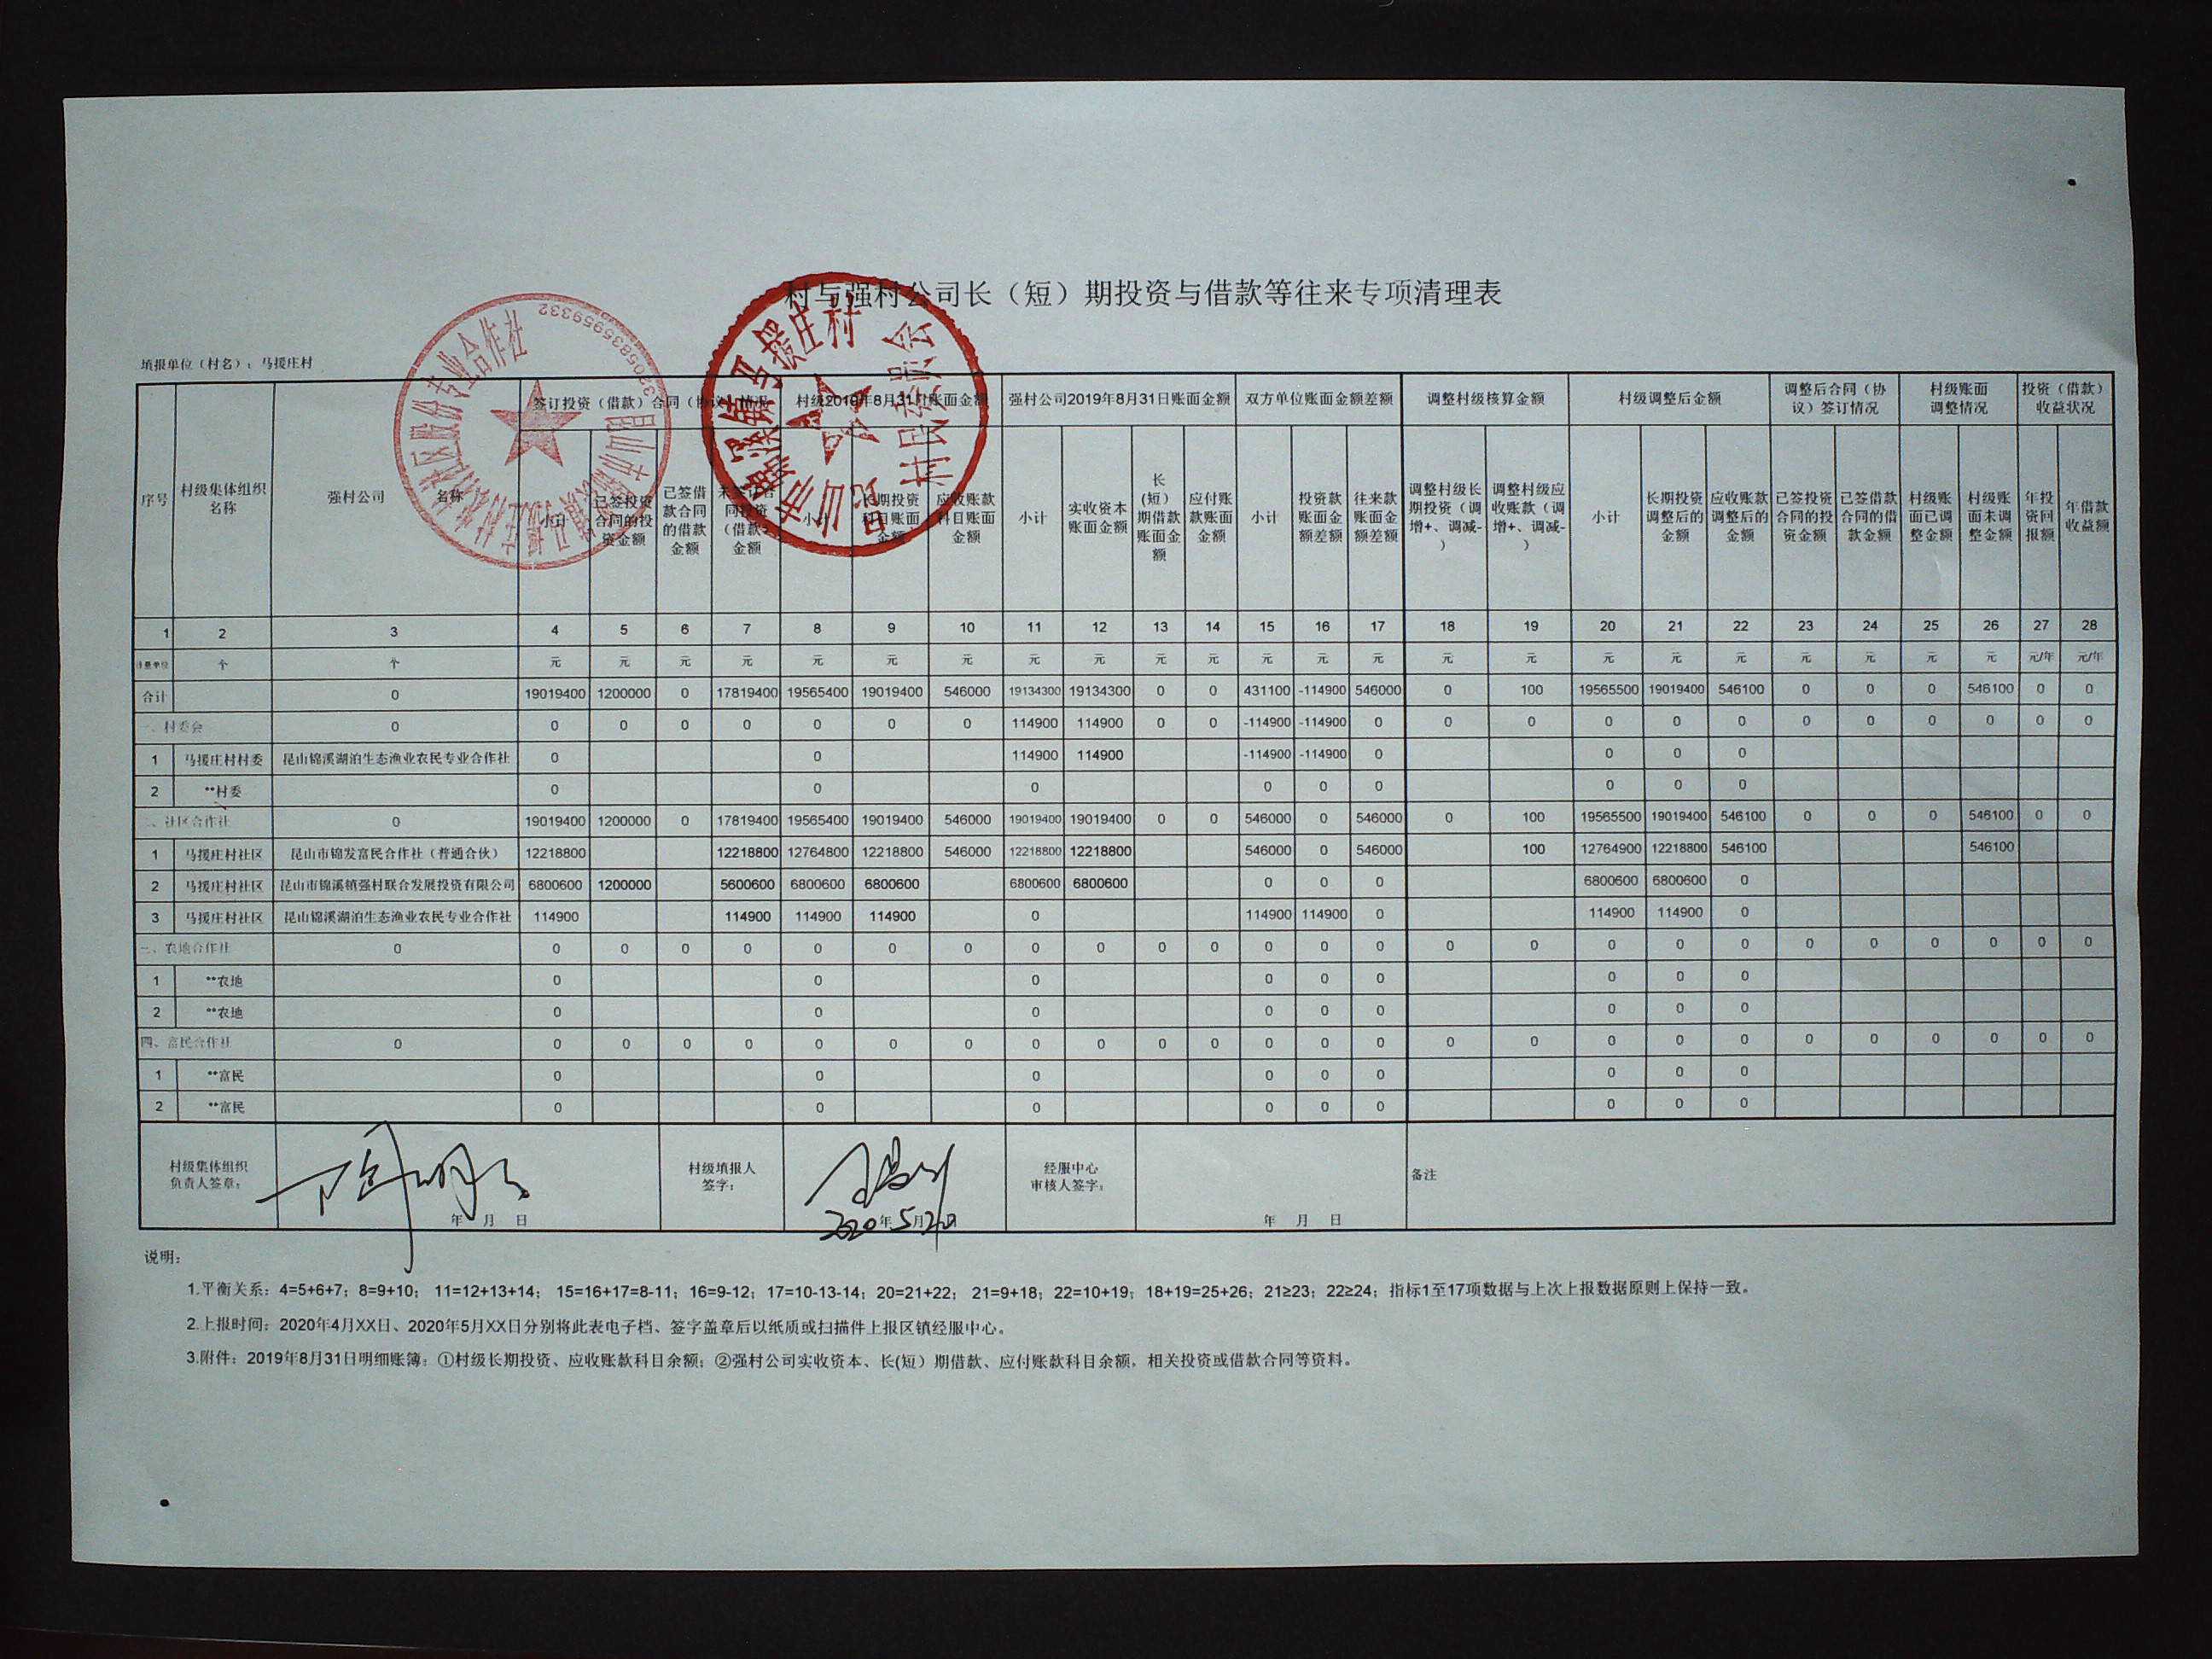 村与强村公司长（短）期投资与借款等往来专项清理表
填报单位（村名）：马援庄村
序号 村级集体组织名称 强村公司 名称 签订投资（借款）合同（协议）情况 村级2019年8月31日账面金额 强村公司2019年8月31日账面金额 双方单位账面金额差额 调整村级核算金额 村级调整后金额 调整后合同（协议）签订情况 村级账面调整情况 投资（借款）收益状况
小计 已签投资合同的投资金额 已签借款合同的借款金额 未签订合同投资（借款）金额 小计 长期投资科目账面金额 应收账款科目账面金额 小计 实收资本账面金额 长（短）期借款账面金额 应付账款账面金额 小计 投资款账面金额差额 往来款账面金额差额 调整村级长期投资（调增+、调减-） 调整村级应收账款（调增+、调减-） 小计 长期投资调整后的金额 应收账款调整后的金额 已签投资合同的投资金额 已签借款合同的借款金额 村级账面已调整金额 村级账面未调整金额 年投资回报额 年借款收益额
1 2 3 4 5 6 7 8 9 10 11 12 13 14 15 16 17 18 19 20 21 22 23 24 25 26 27 28
计量单位 个 个 元 元 元 元 元 元 元 元 元 元 元 元 元 元 元 元 元 元 元 元 元 元 元 元/年 元/年
合计 0 19019400 1200000 0 17819400 19565400 19019400 546000 19134300 19134300 0 0 431100 -114900 546000 0 100 19565500 19019400 546100 0 0 0 546100 0 0
一、村委会 0 0 0 0 0 0 0 0 114900 114900 0 0 -114900 -114900 0 0 0 0 0 0 0 0 0 0 0 0
1 马援庄村村委 昆山锦溪湖泊生态渔业农民专业合作社 0 0 114900 114900 -114900 -114900 0 0 0 0
2 **村委 0 0 0 0 0 0 0 0 0
二、社区合作社 0 19019400 1200000 0 17819400 19565400 19019400 546000 19019400 19019400 0 0 546000 0 546000 0 100 19565500 19019400 546100 0 0 0 546100 0 0
1 马援庄村社区 昆山市锦发富民合作社（普通合伙） 12218800 12218800 12764800 12218800 546000 12218800 12218800 546000 0 546000 100 12764900 12218800 546100 546100
2 马援庄村社区 昆山市锦溪镇强村联合发展投资有限公司 6800600 1200000 5600600 6800600 6800600 6800600 6800600 0 0 0 6800600 6800600 0
3 马援庄村社区 昆山锦溪湖泊生态渔业农民专业合作社 114900 114900 114900 114900 0 114900 114900 0 114900 114900 0
三、农地合作社 0 0 0 0 0 0 0 0 0 0 0 0 0 0 0 0 0 0 0 0 0 0 0 0 0 0
1 **农地 0 0 0 0 0 0 0 0 0
2 **农地 0 0 0 0 0 0 0 0 0
四、富民合作社 0 0 0 0 0 0 0 0 0 0 0 0 0 0 0 0 0 0 0 0 0 0 0 0 0 0
1 **富民 0 0 0 0 0 0 0 0 0
2 **富民 0 0 0 0 0 0 0 0 0
村级集体组织负责人签章： 年 月 日 村级填报人签字： 2020年5月 经服中心审核人签字： 年 月 日 备注
说明：
1.平衡关系：4=5+6+7；8=9+10； 11=12+13+14； 15=16+17=8-11；16=9-12；17=10-13-14；20=21+22； 21=9+18；22=10+19；18+19=25+26；21≥23；22≥24；指标1至17项数据与上次上报数据原则上保持一致。
2.上报时间：2020年4月XX日、2020年5月XX日分别将此表电子档、签字盖章后以纸质或扫描件上报区镇经服中心。
3.附件：2019年8月31日明细账簿：①村级长期投资、应收账款科目余额；②强村公司实收资本、长(短）期借款、应付账款科目余额，相关投资或借款合同等资料。